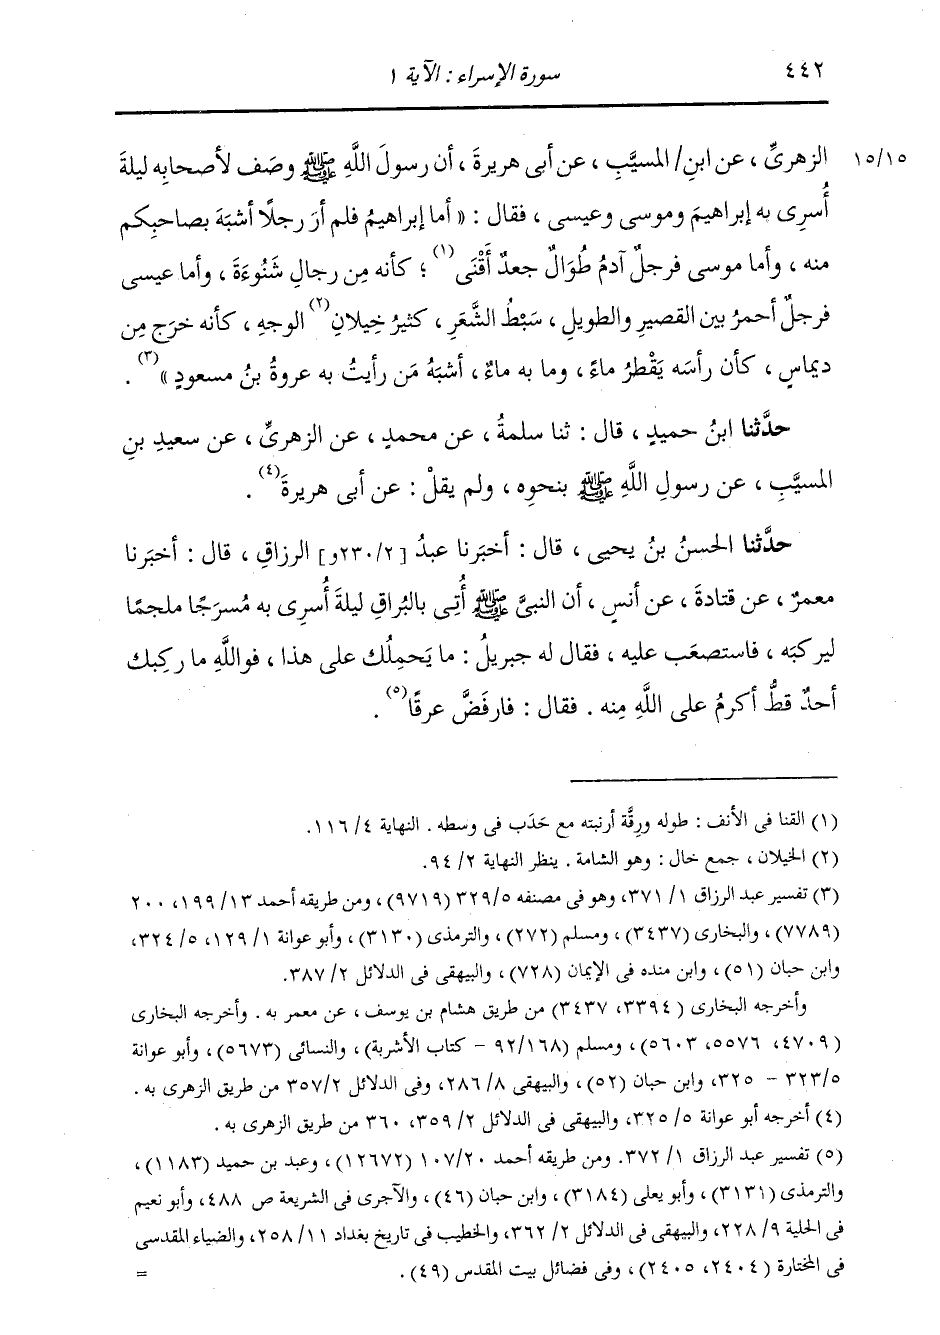 ٤٤٢
سورة الإسراء : الآية ١
١٥/١٥
الزهرىِّ ، عن ابنِ/ المسيَّبِ ، عن أبى هريرةَ ، أن رسولَ اللَّهِ ﷺ وصَف لأصحابِه ليلةَ
أُسرِى به إبراهيمَ وموسى وعيسى ، فقال : « أما إبراهيمُ فلم أرَ رجلًا أشبَهَ بصاحبِكم
منه ، وأما موسى فرجلٌ آدمُ طُوَالٌ جعدٌ أَقْنَى(١) ؛ كأنه مِن رجالِ شَنُوءَةَ ، وأما عيسى
فرجلٌ أحمرُ بين القصيرِ والطويلِ ، سَبْطُ الشَّعَرِ ، كثيرُ خِيلانِ(٢) الوجهِ ، كأنه خرَج مِن
ديماسٍ ، كأن رأسَه يَقْطرُ ماءً ، وما به ماءٌ ، أشبَهُ مَن رأيتُ به عروةُ بنُ مسعودٍ »(٣) .
حدَّثنا ابنُ حميدٍ ، قال : ثنا سلمةُ ، عن محمدٍ ، عن الزهرىِّ ، عن سعيدِ بنِ
المسيَّبِ ، عن رسولِ اللَّهِ ﷺ بنحوِه ، ولم يقلْ : عن أبى هريرةَ(٤) .
حدَّثنا الحسنُ بنُ يحيى ، قال : أخبَرنا عبدُ [٢٣٠/٢و] الرزاقِ ، قال : أخبَرنا
معمرٌ ، عن قتادةَ ، عن أنسٍ ، أن النبىَّ ﷺ أُتِى بالبُراقِ ليلةَ أُسرِى به مُسرَجًا ملجمًا
ليركبَه ، فاستصعَب عليه ، فقال له جبريلُ : ما يَحمِلُك على هذا ، فواللَّهِ ما ركِبك
أحدٌ قطُّ أكرمُ على اللَّهِ مِنه . فقال : فارفَضَّ عرقًا(٥) .
(١) القنا فى الأنف : طوله ورِقَّة أرنبته مع حَدَب فى وسطه . النهاية ٤/ ١١٦.
(٢) الخيلان ، جمع خال : وهو الشامة . ينظر النهاية ٢/ ٩٤.
(٣) تفسير عبد الرزاق ١/ ٣٧١، وهو فى مصنفه ٣٢٩/٥ (٩٧١٩) ، ومن طريقه أحمد ١٣/ ١٩٩، ٢٠٠
(٧٧٨٩) ، والبخارى (٣٤٣٧) ، ومسلم (٢٧٢) ، والترمذى (٣١٣٠) ، وأبو عوانة ١/ ١٢٩، ٥/ ٣٢٤،
وابن حبان (٥١) ، وابن منده فى الإيمان (٧٢٨) ، والبيهقى فى الدلائل ٢/ ٣٨٧.
وأخرجه البخارى ( ٣٣٩٤، ٣٤٣٧) من طريق هشام بن يوسف ، عن معمر به . وأخرجه البخارى
(٤٧٠٩، ٥٥٧٦، ٥٦٠٣) ، ومسلم (٩٢/١٦٨ - كتاب الأشربة) ، والنسائى (٥٦٧٣) ، وأبو عوانة
٣٢٣/٥ - ٣٢٥، وابن حبان (٥٢) ، والبيهقى ٨/ ٢٨٦، وفى الدلائل ٣٥٧/٢ من طريق الزهرى به .
(٤) أخرجه أبو عوانة ٥/ ٣٢٥، والبيهقى فى الدلائل ٢/ ٣٥٩، ٣٦٠ من طريق الزهرى به .
(٥) تفسير عبد الرزاق ١/ ٣٧٢. ومن طريقه أحمد ١٠٧/٢٠ (١٢٦٧٢) ، وعبد بن حميد (١١٨٣) ،
والترمذى (٣١٣١) ، وأبو يعلى (٣١٨٤) ، وابن حبان (٤٦) ، والآجرى فى الشريعة ص ٤٨٨، وأبو نعيم
فى الحلية ٩/ ٢٢٨، والبيهقى فى الدلائل ٢/ ٣٦٢، والخطيب فى تاريخ بغداد ١١/ ٢٥٨، والضياء المقدسى
فى المختارة (٢٤٠٤، ٢٤٠٥) ، وفى فضائل بيت المقدس (٤٩) .
=